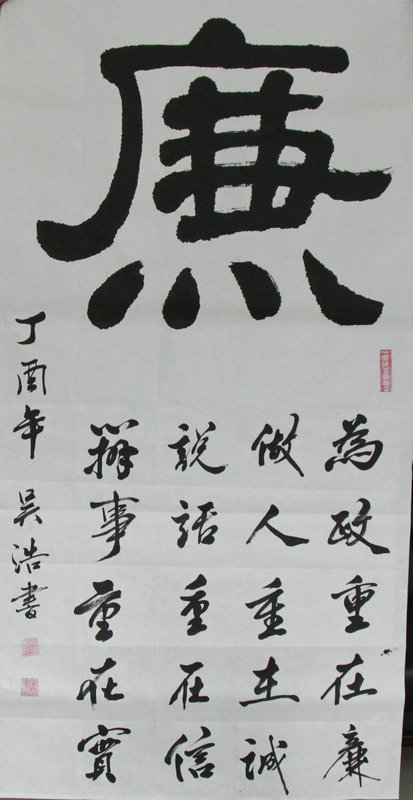 廉
為政重在廉
做人重在誠
說話重在信
辦事重在實
丁酉年 吴浩書